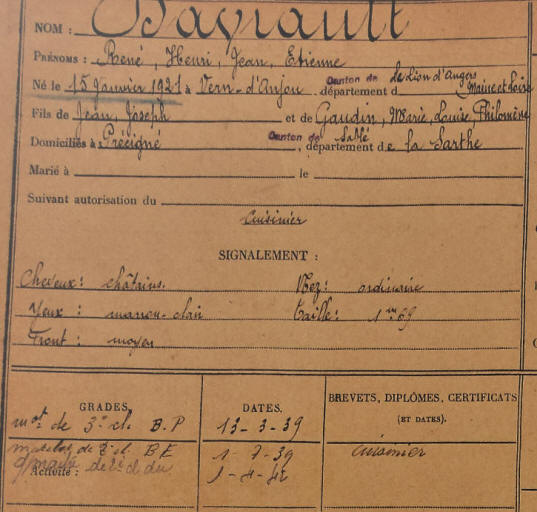 NOM : Bayrault
PRÉNOMS : René, Henri, Jean, Etienne
Né le 15 Janvier 1921 à Vern-d'Anjou, Canton de le Lion d'Angers département d Maine et Loire
Fils de Jean, Joseph et de Gaudin, Marie, Louise, Philomène
Domiciliés à Précigné, Canton de Sablé, département de la Sarthe
Marié à le
Suivant autorisation du
Cuisinier
SIGNALEMENT :
Cheveux : châtains. Nez : ordinaire
Yeux : marron-clair Taille : 1m69
Front : moyen
GRADES. DATES. BREVETS, DIPLÔMES, CERTIFICATS
(ET DATES).
mot de 3e cl. B.P 13-3-39
matelot de 2e cl. BE 1-7-39 cuisinier
Activité : de 2e cl du 1-4-42